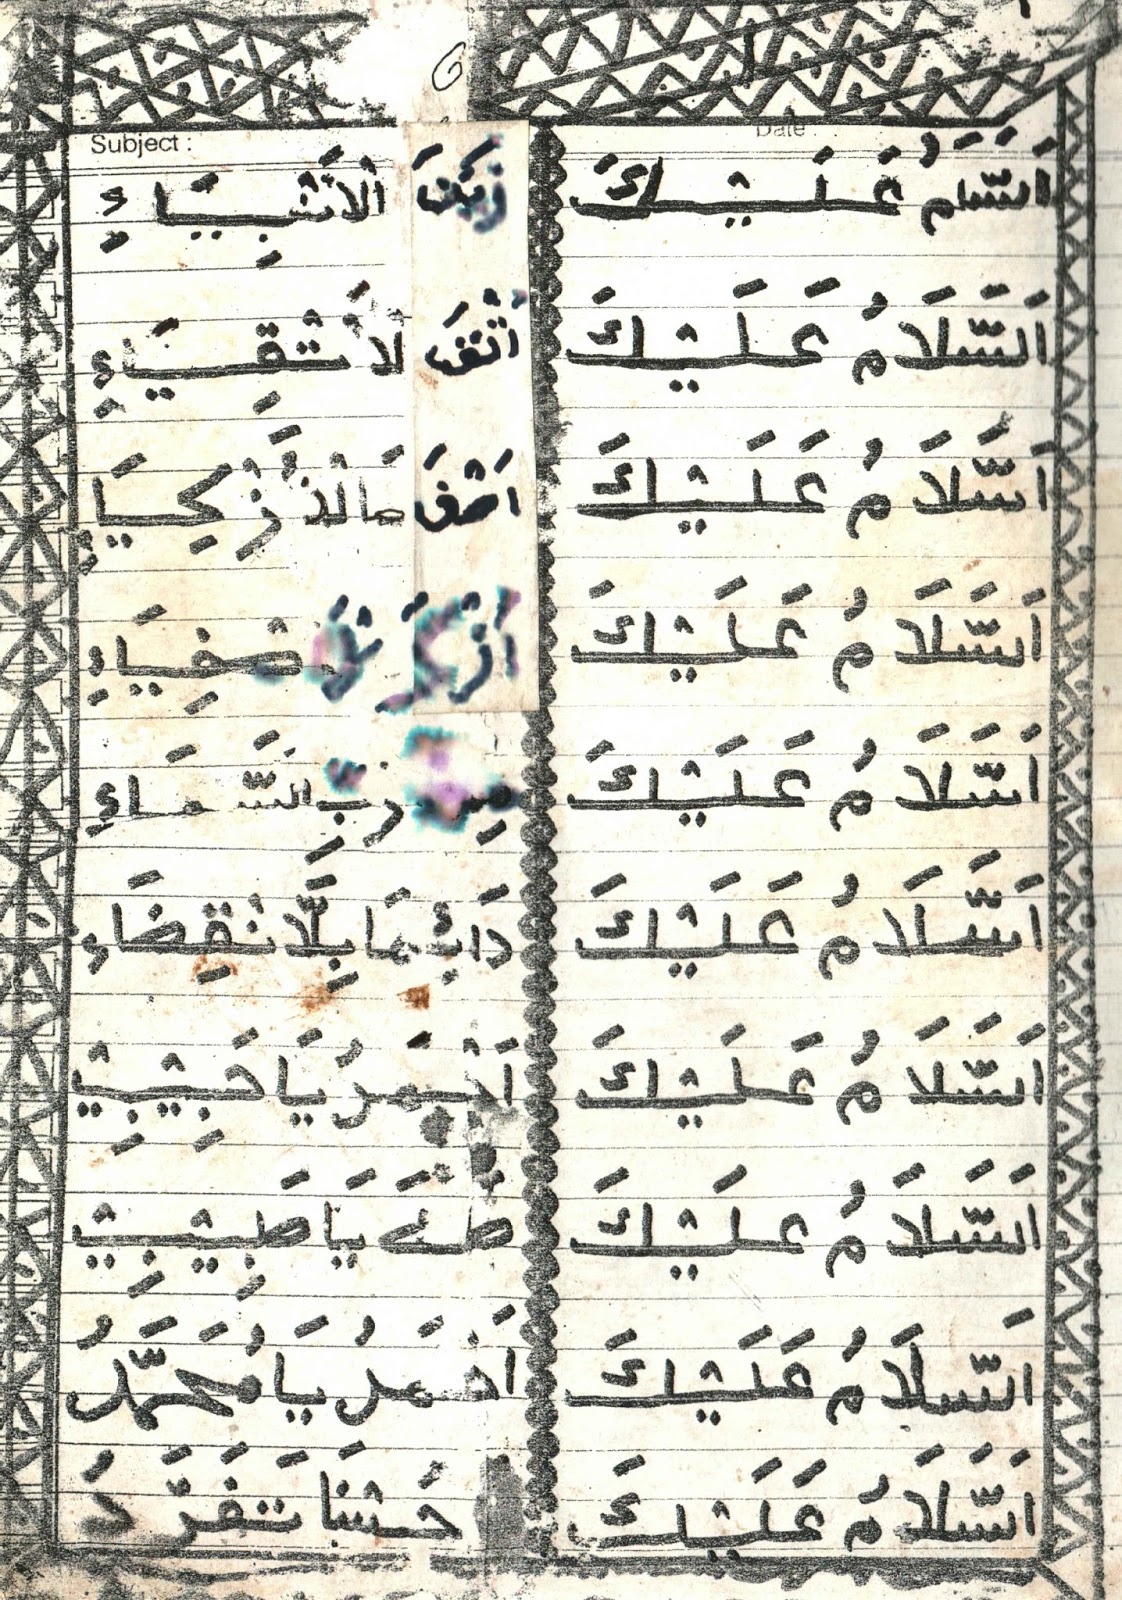 Subject : Date :
اَلسَّلَامُ عَلَيْكَ زَيْنَ اَلْاَنْبِيَاءِ
اَلسَّلَامُ عَلَيْكَ اَتْقَى لْاَتْقِيَاءِ
اَسَّلَامُ عَلَيْكَ اَصْفَ
اَسَّلَامُ عَلَيْكَ صْفِيَاءِ
اَسَّلَامُ عَلَيْكَ رَبِّ السَّمَاءِ
اَسَّلَامُ عَلَيْكَ دَائِمَا بِلَّانْقِضَاءِ
اَسَّلَامُ عَلَيْكَ اَحْمَدُ يَا حَبِيْبِيْ
اَسَّلَامُ عَلَيْكَ طٰهَ يَا طَبِيْبِيْ
اَسَّلَامُ عَلَيْكَ اَحْمَدُ يَا مُحَمَّدُ
اَسَّلَامُ عَلَيْكَ حُسْنَا تَفَرَّدُ